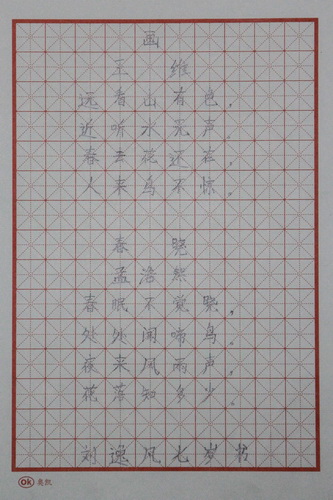 画
王 维
远看山有色，
近听水无声。
春去花还在，
人来鸟不惊。
春 晓
孟浩然
春眠不觉晓，
处处闻啼鸟。
夜来风雨声，
花落知多少。
刘逸风七岁书
OK 奥凯